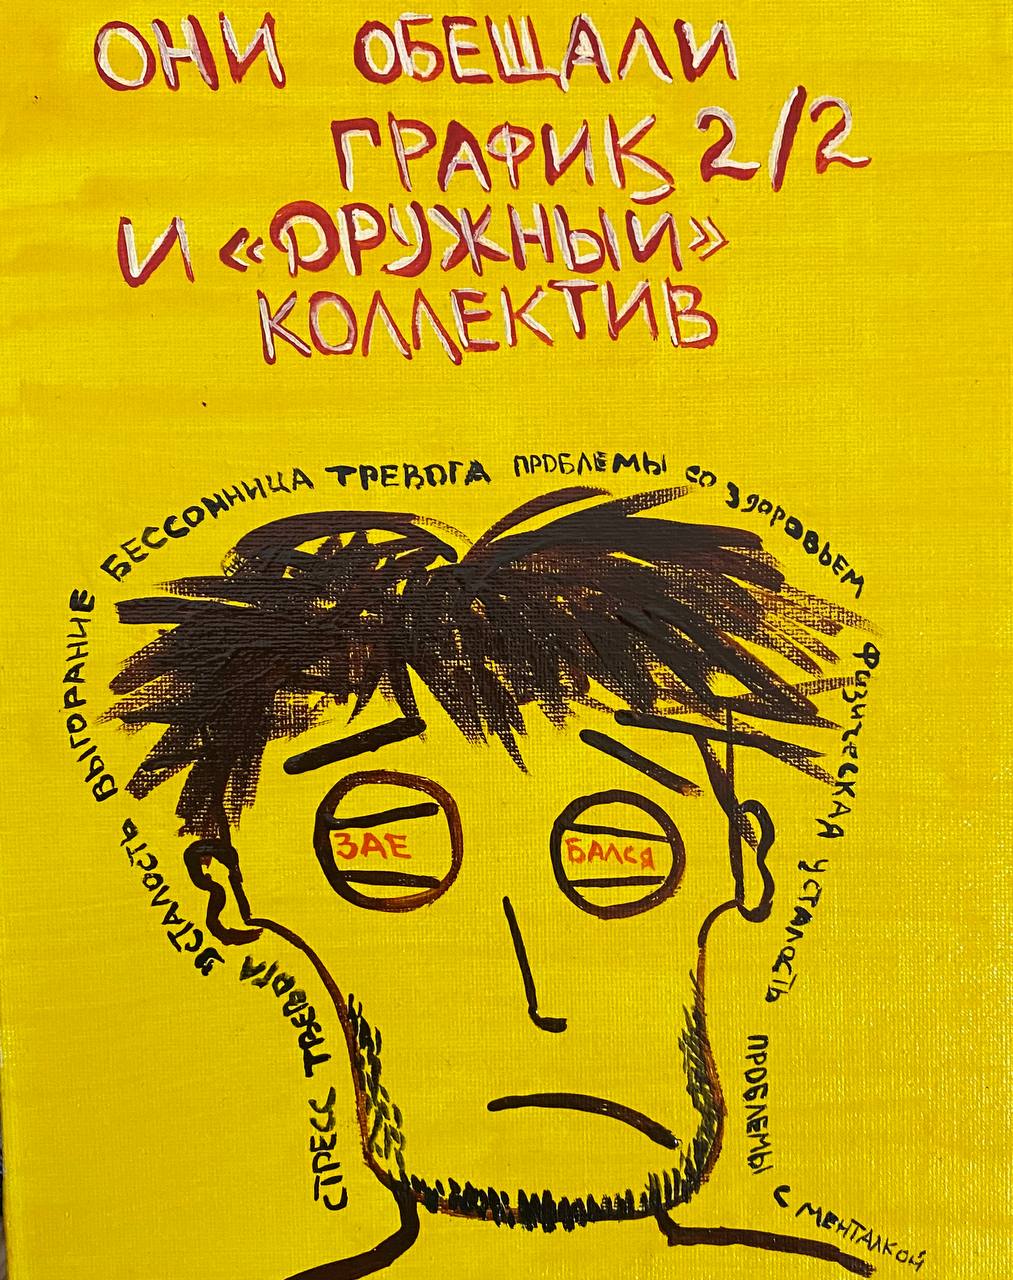 ОНИ ОБЕЩАЛИ
ГРАФИК 2/2
И «ДРУЖНЫЙ»
КОЛЛЕКТИВ
СТРЕСС ТРЕВОГА УСТАЛОСТЬ ВЫГОРАНИЕ БЕССОННИЦА ТРЕВОГА ПРОБЛЕМЫ СО ЗДОРОВЬЕМ ФИЗИЧЕСКАЯ УСТАЛОСТЬ ПРОБЛЕМЫ С МЕНТАЛКОЙ
ЗАЕ БАЛСЯ